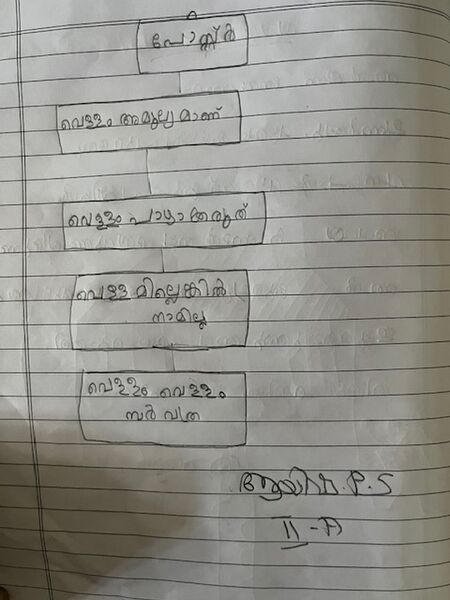 പോസ്റ്റർ
വെള്ളം അമൂല്യമാണ്
വെള്ളം പാഴാക്കരുത്
വെള്ളമില്ലെങ്കിൽ
നാമില്ല
വെള്ളം വെള്ളം
സർവത്ര
P.S
II-A